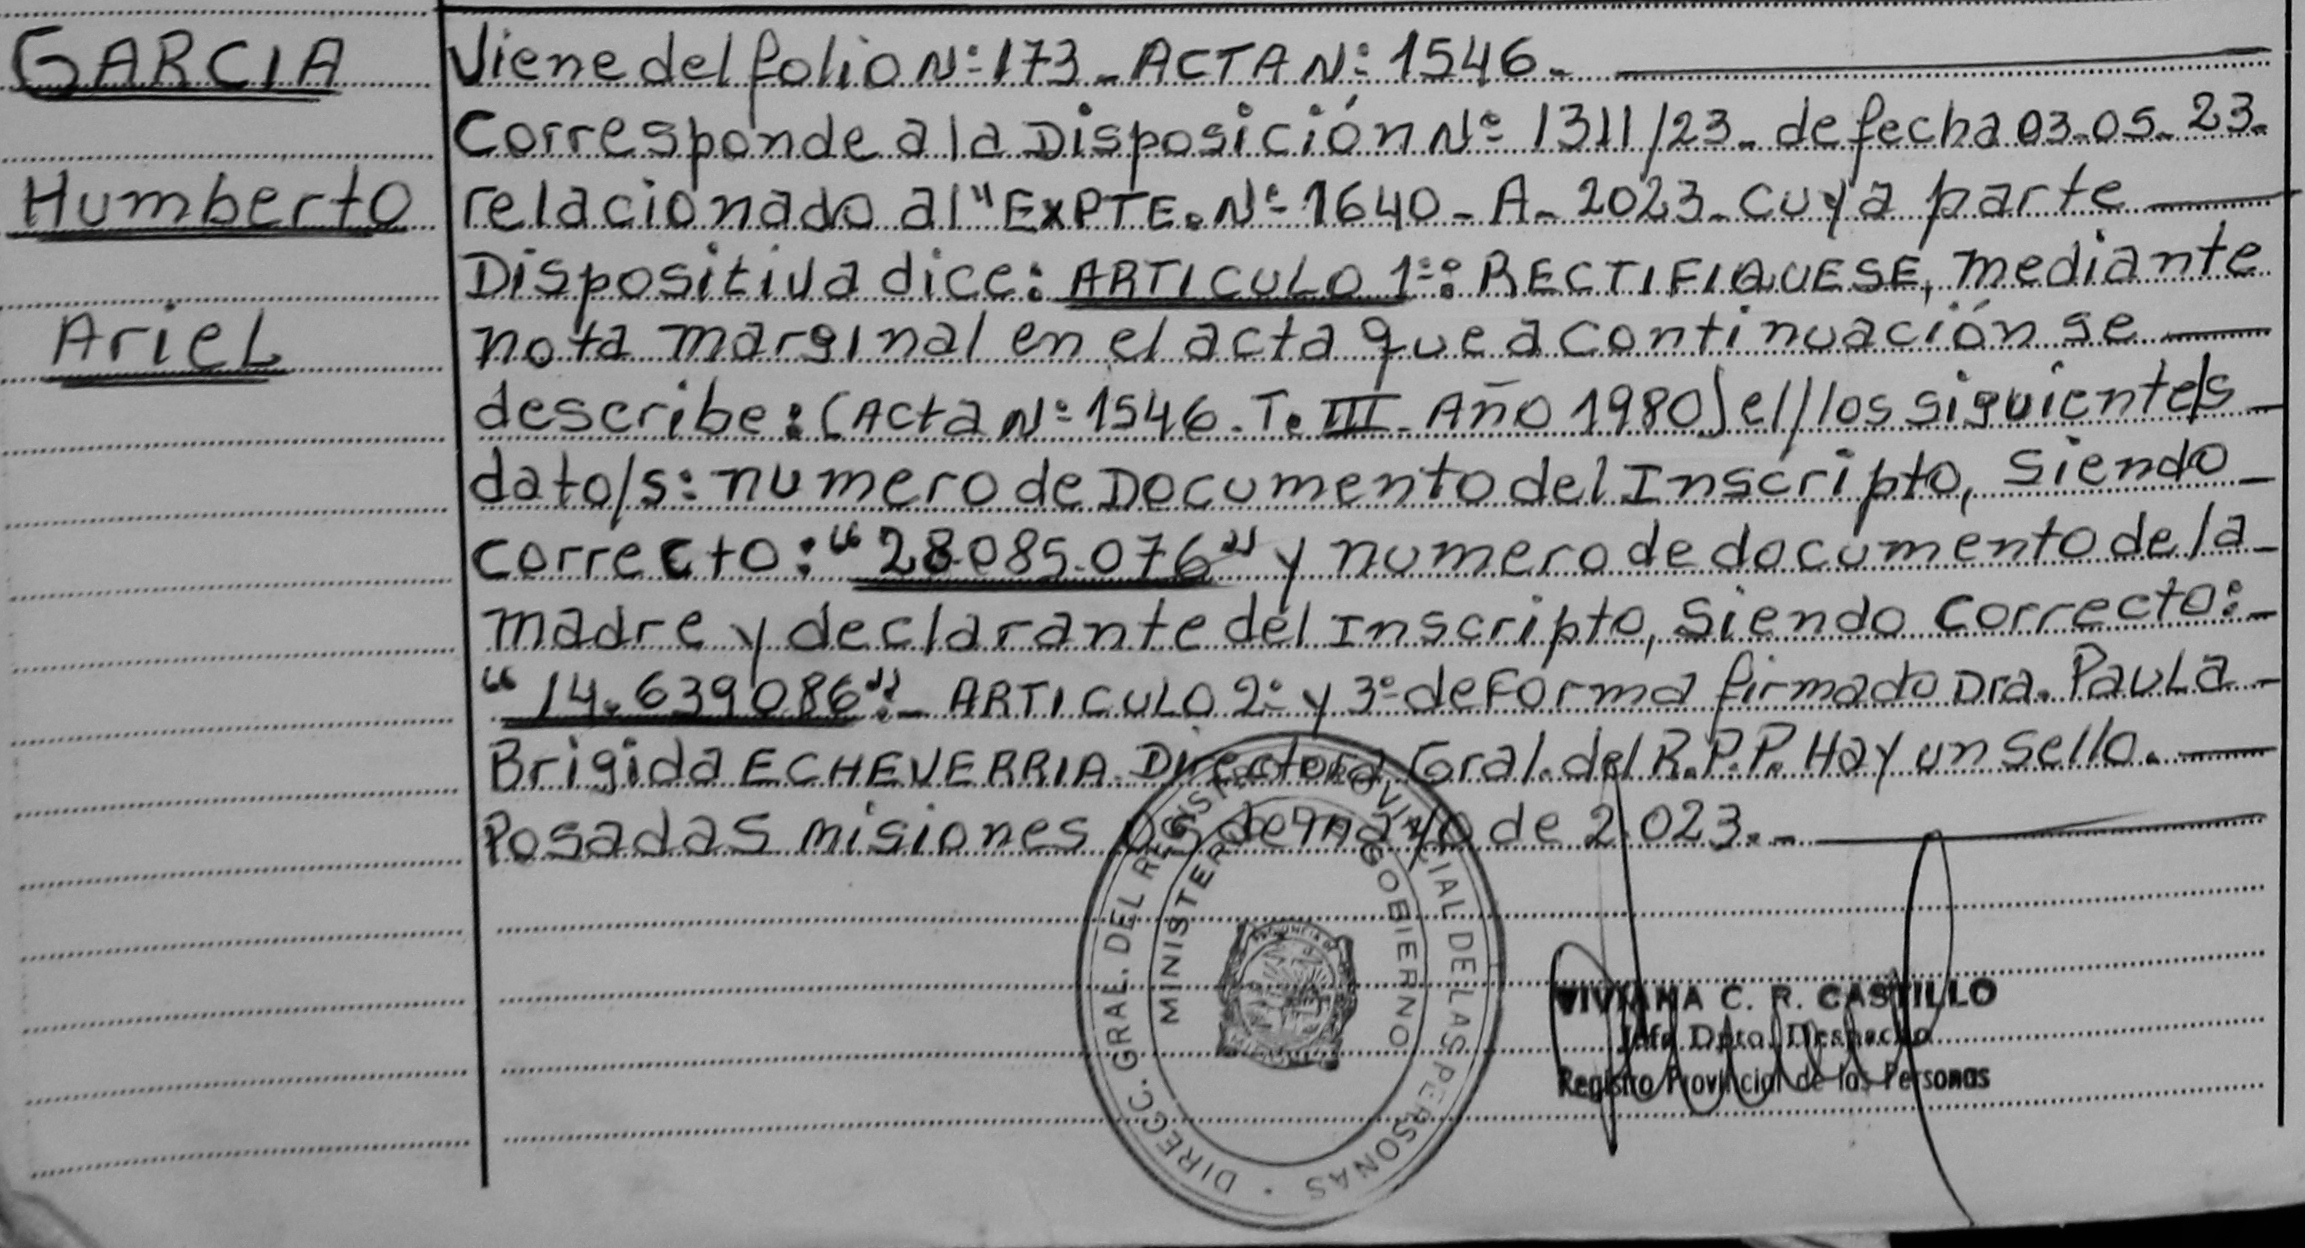 GARCIA
Humberto
Ariel
Viene del folio Nº 173 - ACTA Nº 1546.
Corresponde a la Disposición Nº 1311/23. de fecha 03-05-23.
relacionado al "EXPTE. Nº 1640 - A - 2023 - cuya parte
Dispositiva dice: ARTICULO 1º: RECTIFIQUESE, mediante
nota marginal en el acta que a continuación se
describe: (Acta Nº 1546. T. III. Año 1980) el/los siguiente/s
dato/s: numero de Documento del Inscripto, siendo
correcto: "28.085.076" y numero de documento de la
madre y declarante del Inscripto, siendo correcto:
"14.639086". ARTICULO 2º y 3º de Forma firmado Dra. Paula
Brigida ECHEVERRIA. Directora Gral. del R.P.P. Hay un sello.
Posadas misiones de mayo de 2.023.
DIRECC. GRAL. DEL REGISTRO PROVINCIAL DE LAS PERSONAS
MINISTERIO GOBIERNO
PROVINCIA DE
VIVIANA C. R. CASTILLO
Jefa Dpto. Despacho
Registro Provincial de las Personas